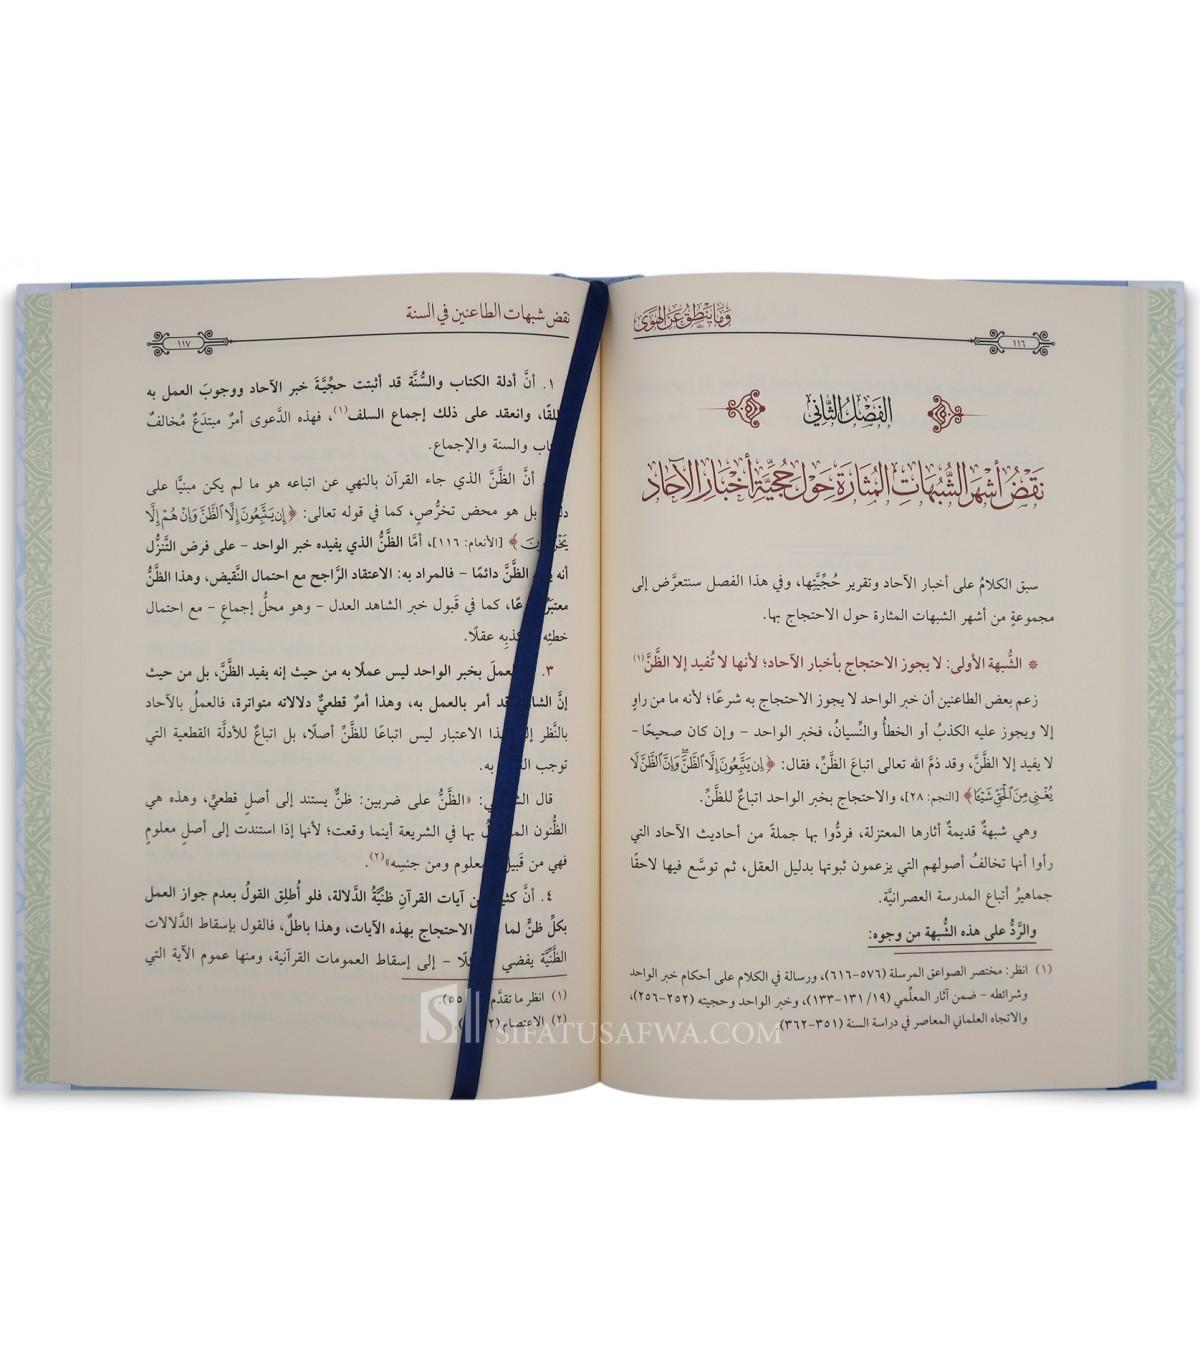 وَمَا يَنْطِقُ عَنِ الْهَوَى
١١٦
الفَصْلُ الثَّانِي
نَقْضُ أَشْهَرِ الشُّبُهَاتِ المُثَارَةِ حَوْلَ حُجِّيَّةِ أَخْبَارِ الآحَاد
سبق الكلامُ على أخبار الآحاد وتقرير حُجِّيَّتِها، وفي هذا الفصل سنتعرَّض إلى
مجموعةٍ من أشهر الشبهات المثارة حول الاحتجاج بها.
* الشُّبهة الأولى: لا يجوز الاحتجاج بأخبار الآحاد؛ لأنها لا تُفيد إلا الظَّنَّ(١)
زعم بعض الطاعنين أن خبر الواحد لا يجوز الاحتجاج به شرعًا؛ لأنه ما من راوٍ
إلا ويجوز عليه الكذبُ أو الخطأُ والنِّسيانُ، فخبر الواحد – وإن كان صحيحًا –
لا يفيد إلا الظَّنَّ، وقد ذمَّ الله تعالى اتباعَ الظَّنِّ، فقال: ﴿إِن يَتَّبِعُونَ إِلَّا ٱلظَّنَّ وَإِنَّ ٱلظَّنَّ لَا
يُغْنِي مِنَ ٱلْحَقِّ شَيْئًا﴾ [النجم: ٢٨]، والاحتجاج بخبر الواحد اتباعٌ للظَّنِّ.
وهي شبهةٌ قديمةٌ أثارها المعتزلة، فردُّوا بها جملةً من أحاديث الآحاد التي
رأوا أنها تخالفُ أصولهم التي يزعمون ثبوتها بدليل العقل، ثم توسَّع فيها لاحقًا
جماهيرُ أتباع المدرسة العصرانيَّة.
والرَّدُّ على هذه الشُّبهة من وجوه:
(١) انظر: مختصر الصواعق المرسلة (٥٧٦-٦١٦)، ورسالة في الكلام على أحكام خبر الواحد
وشرائطه – ضمن آثار المعلِّمي (١٩/ ١٣١-١٣٣)، وخبر الواحد وحجيته (٢٥٢-٢٥٦)،
والاتجاه العلماني المعاصر في دراسة السنة (٣٥١-٣٦٢).
نقض شبهات الطاعنين في السنة
١١٧
١. أنَّ أدلة الكتاب والسُّنَّة قد أثبتت حجِّيَّةَ خبر الآحاد ووجوبَ العمل به
لقًا، وانعقد على ذلك إجماع السلف(١)، فهذه الدَّعوى أمرٌ مبتدَعٌ مُخالفٌ
تاب والسنة والإجماع.
أنَّ الظَّنَّ الذي جاء القرآن بالنهي عن اتباعه هو ما لم يكن مبنيًّا على
بل هو محض تخرُّصٍ، كما في قوله تعالى: ﴿إِن يَتَّبِعُونَ إِلَّا ٱلظَّنَّ وَإِنْ هُمْ إِلَّا
﴾ [الأنعام: ١١٦]، أمَّا الظَّنُّ الذي يفيده خبر الواحد – على فرض التَّنزُّل
أنه الظَّنَّ دائمًا – فالمراد به: الاعتقاد الرَّاجح مع احتمال النَّقيض، وهذا الظَّنُّ
معتبَرٌ عًا، كما في قَبول خبر الشاهد العدل – وهو محلُّ إجماعٍ – مع احتمال
خطئِه كذبِه عقلًا.
٣. العملَ بخبر الواحد ليس عملًا به من حيث إنه يفيد الظَّنَّ، بل من حيث
إنَّ قد أمر بالعمل به، وهذا أمرٌ قطعيٌّ دلالاته متواترة، فالعملُ بالآحاد
بالنَّظر ذا الاعتبار ليس اتباعًا للظَّنِّ أصلًا، بل اتباعٌ للأدلَّة القطعية التي
توجب به.
قال : «الظَّنُّ على ضربين: ظنٌّ يستند إلى أصلٍ قطعيٍّ، وهذه هي
الظُّنون بها في الشريعة أينما وقعت؛ لأنها إذا استندت إلى أصلٍ معلومٍ
فهي من قَبيل معلوم ومن جنسِه»(٢).
٤. أنَّ ن آيات القرآنِ ظنِّيَّةُ الدَّلالة، فلو أُطلِق القولُ بعدم جواز العمل
بكلِّ ظنٍّ لما الاحتجاج بهذه الآيات، وهذا باطلٌ، فالقول بإسقاط الدَّلالات
الظَّنِّيَّة يفضي – لًا – إلى إسقاط العمومات القرآنية، ومنها عموم الآية التي
(١) انظر ما تقدَّم ٥٥).
(٢) الاعتصام
SIFATUSAFWA.COM